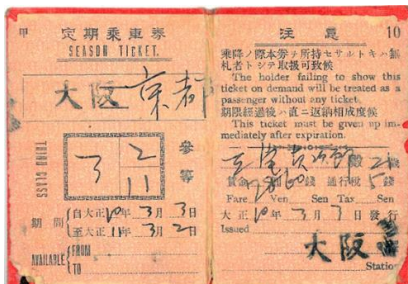 甲
定期乘車券
SEASON TICKET.
大阪 京都
THIRD CLASS
3 2
11
參等
期間
自大正10年3月3日
至大正11年3月2日
AVAILABLE FROM
TO
注意 10
乘降ノ際本券ヲ所持セサルトキハ無
札者トシテ取扱可致候
The holder failing to show this
ticket on demand will be treated as a
passenger without any ticket.
期限經過後ハ直ニ返納相成度候
This ticket must be given up im-
mediately after expiration.
殿
賃金 錢 通行稅 5錢
Fare Yen Sen Tax Sen
大正10年3月3日發行
Issued
大阪
Station